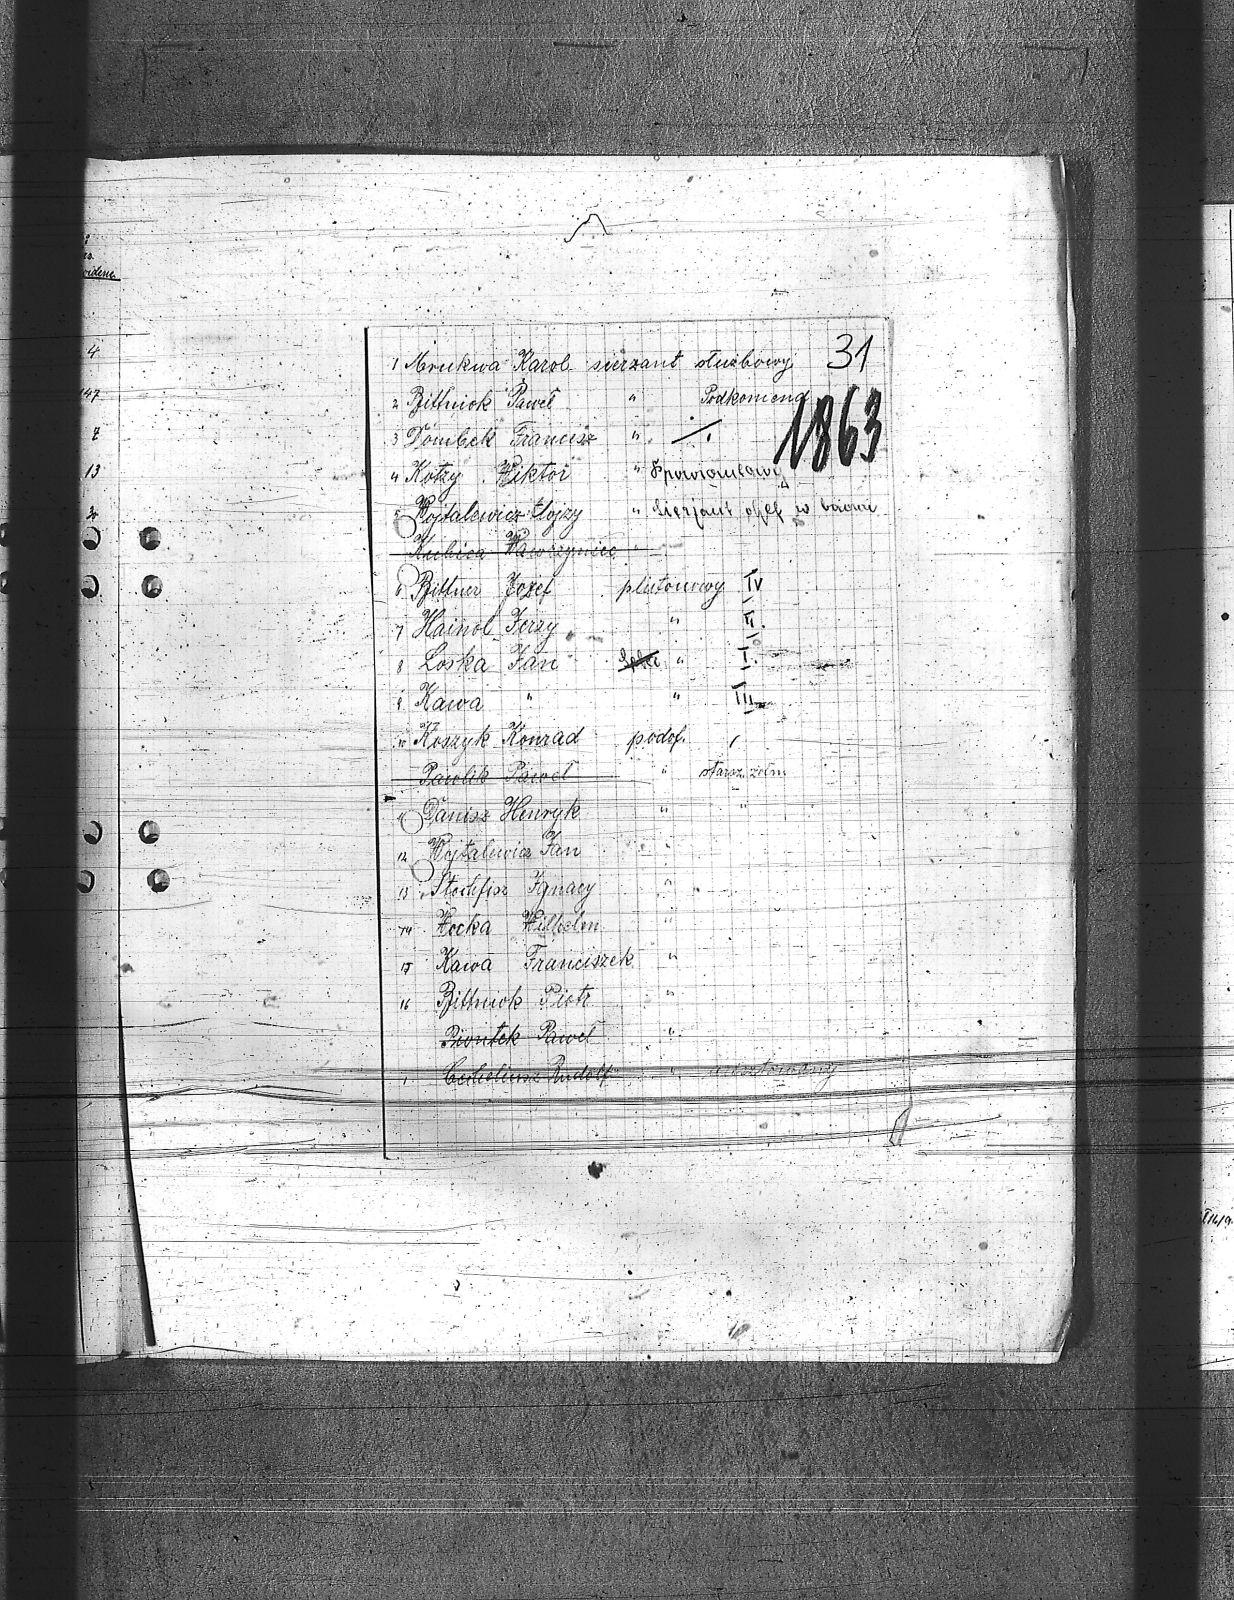 31
1 Mrukwa Karol sierzant służbowy
1863
2 Bittniok Paweł " Podkomend
3 Dombek Francisz "
4 Kotzy Wiktor "
5 Wojtalewicz Alojzy " Sierjant
Kubica Wawrzyniec "
6 Bittner Jozef plutonowy IV
7 Hainol Jerzy " II.
8 Loska Jan " I.
9 Kawa " " III
10 Koszyk Konrad podof.
Pawlik Paweł " starsz. żołn
11 Danisz Henryk " "
12 Wojtalewicz Jan "
13 Stockfisz Ignacy "
14 Hecka Wilhelm "
15 Kawa Franciszek "
16 Bittniok Piotr "
Piontek Paweł "
Rudolf "
4
147
7
13